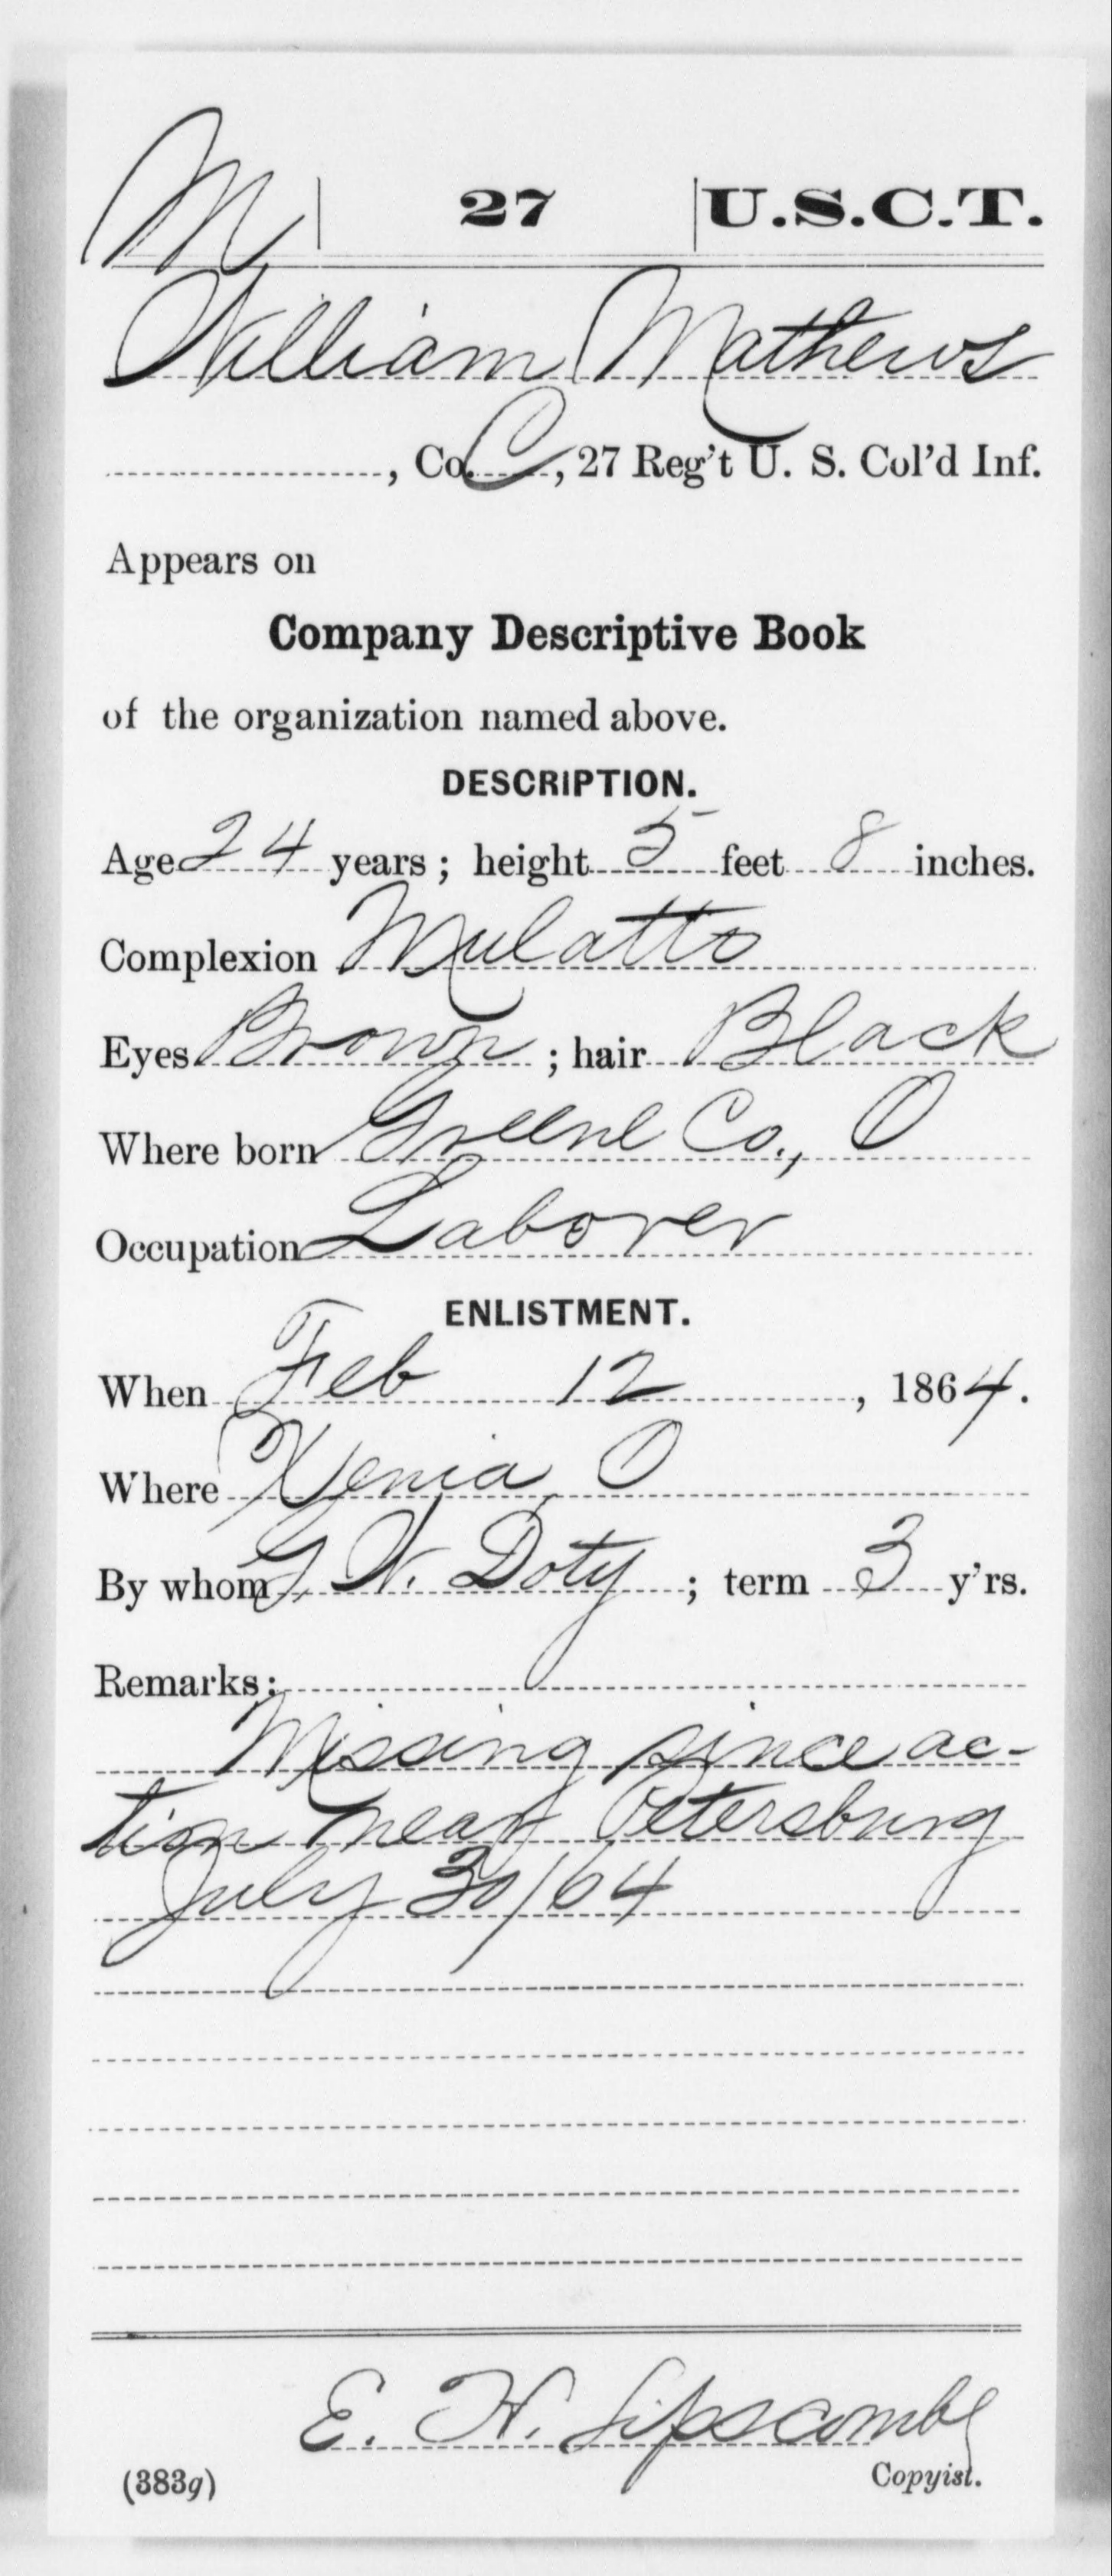 M | 27 | U.S.C.T.
William Mathews
, Co. C, 27 Reg't U. S. Col'd Inf.
Appears on
Company Descriptive Book
of the organization named above.
DESCRIPTION.
Age 24 years; height 5 feet 8 inches.
Complexion Mulatto
Eyes Brown; hair Black
Where born Greene Co., O
Occupation Laborer
ENLISTMENT.
When Feb 12, 1864.
Where Xenia, O
By whom G. W. Doty; term 3 y'rs.
Remarks:
Missing since ac-
tion near Petersburg
July 30/64
E. H. Lipscomb
Copyist.
(383g)